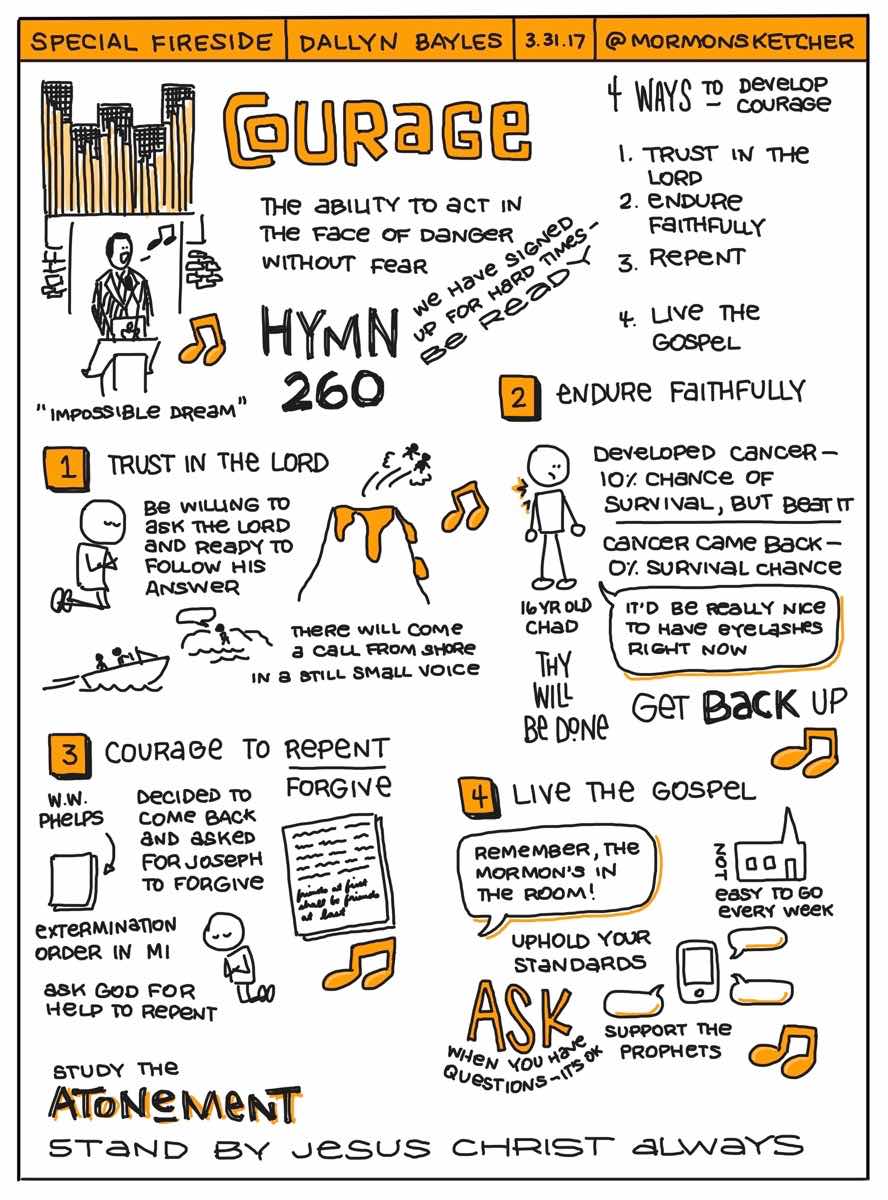 SPECIAL FIRESIDE
DALLYN BAYLES
3.31.17
@MORMONSKETCHER
COURAGE
THE ABILITY TO ACT IN
THE FACE OF DANGER
WITHOUT FEAR
WE HAVE SIGNED
UP FOR HARD TIMES-
BE READY
HYMN
260
"IMPOSSIBLE DREAM"
4 WAYS TO DEVELOP
COURAGE
1. TRUST IN THE
LORD
2. ENDURE
FAITHFULLY
3. REPENT
4. LIVE THE
GOSPEL
1 TRUST IN THE LORD
BE WILLING TO
ASK THE LORD
AND READY TO
FOLLOW HIS
ANSWER
THERE WILL COME
A CALL FROM SHORE
IN A STILL SMALL VOICE
2 ENDURE FAITHFULLY
DEVELOPED CANCER-
10% CHANCE OF
SURVIVAL, BUT BEAT IT
CANCER CAME BACK-
0% SURVIVAL CHANCE
16 YR OLD
CHAD
IT'D BE REALLY NICE
TO HAVE EYELASHES
RIGHT NOW
THY
WILL
BE DONE
GET BACK UP
3 COURAGE TO REPENT
FORGIVE
W.W.
PHELPS
DECIDED TO
COME BACK
AND ASKED
FOR JOSEPH
TO FORGIVE
friends at first
shall be friends
at last
EXTERMINATION
ORDER IN MI
ASK GOD FOR
HELP TO REPENT
4 LIVE THE GOSPEL
REMEMBER, THE
MORMON'S IN
THE ROOM!
NOT
EASY TO GO
EVERY WEEK
UPHOLD YOUR
STANDARDS
ASK
WHEN YOU HAVE
QUESTIONS-IT'S OK
SUPPORT THE
PROPHETS
STUDY THE
ATONEMENT
STAND BY JESUS CHRIST ALWAYS